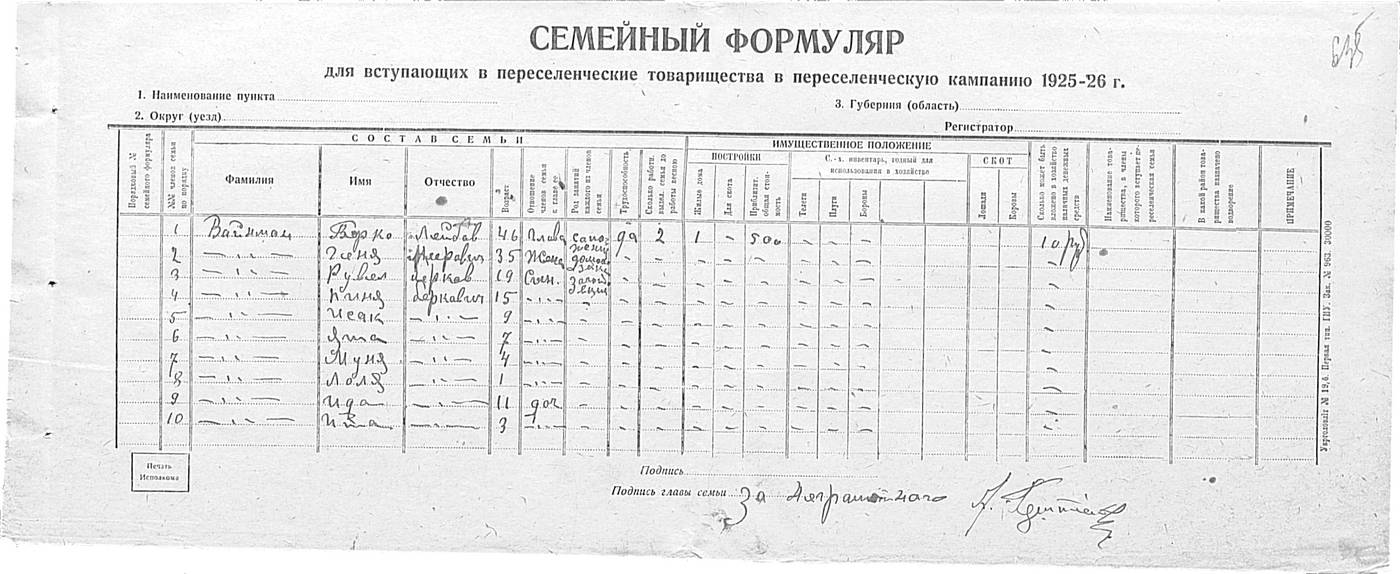 СЕМЕЙНЫЙ ФОРМУЛЯР
для вступающих в переселенческие товарищества в переселенческую кампанию 1925-26 г.
1. Наименование пункта
3. Губерния (область)
2. Округ (уезд)
Регистратор
Порядковый № семейного формуляра
№№ членов семьи по порядку
СОСТАВ СЕМЬИ
Фамилия
Имя
Отчество
Возраст
Отношение членов семьи к главе ее
Род занятий каждого из членов семьи
Трудоспособность
Сколько работн. выдел. семья до работы весною
ИМУЩЕСТВЕННОЕ ПОЛОЖЕНИЕ
ПОСТРОЙКИ
Жилые дома
Для скота
Приблизит. общая стоимость
С.-х. инвентарь, годный для использования в хозяйстве
Телеги
Плуги
Бороны
СКОТ
Лошади
Коровы
Сколько может быть вложено в хозяйство наличных денежных средств
Наименование товарищества, в члены которого вступает переселенческая семья
В какой район товарищества назначено водворение
ПРИМЕЧАНИЕ
1 Вайнман Берко Лейбов 46 Глава сапожник да 2 1 – 500 – – – – – 10 руб
2 – „ – Геня 35 Жена домоз. – –
3 – „ – Рувел Берков 19 Сын. – –
4 – „ – Пиня Беркович 15 – „ – – –
5 – „ – Исак – „ – 9 – „ – – –
6 – „ – Яша – „ – 7 – „ – – –
7 – „ – Муня – „ – 4 – „ – – –
8 – „ – Лоля – „ – 1 – „ – – –
9 – „ – Ида – „ – 11 доч – –
10 – „ – – „ – 3 – „ – – –
Печать Исполкома
Подпись
Подпись главы семьи За неграмотного
Укрголовліт № 19,6. Первая тип. ГИУ. Зак. № 963. 30000